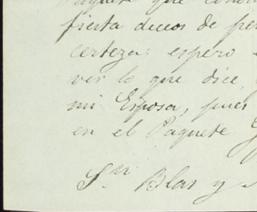 Paquete que
fiesta deceos de
certeza: espero
ver lo que dice
mi Esposa, pues
en el Paquete
Sn. Blas y